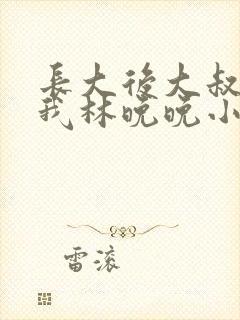 長大後大叔
我林晚晚小
雷滚